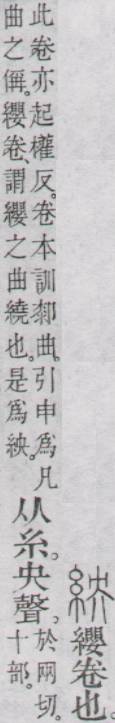 紻纓卷也。
此卷亦起權反。卷本訓厀曲。引申爲凡
曲之偁。纓卷、謂纓之曲繞也。是爲紻。
从糸。央聲。
於兩切。
十部。